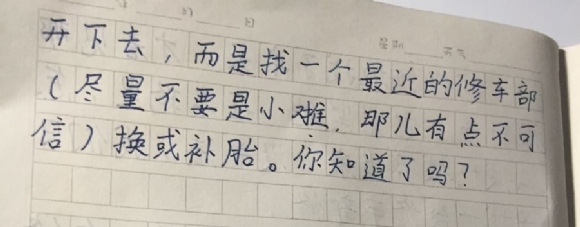 开下去，而是找一个最近的修车部
（尽量不要是小摊，那儿有点不可
信）换或补胎。你知道了吗？